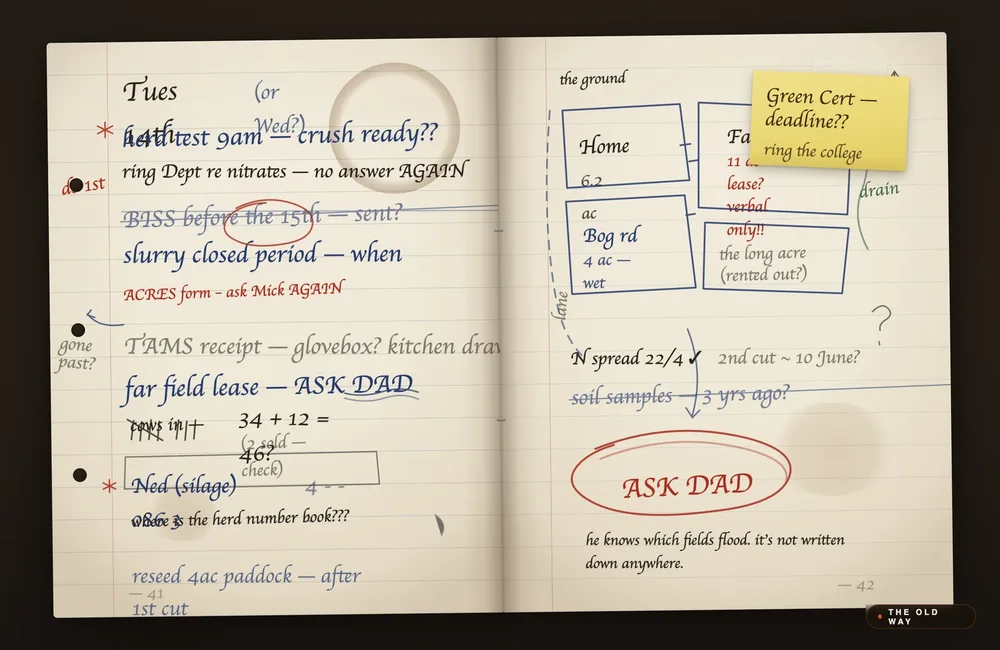 Tues 14th
(or Wed?)
herd test 9am — crush ready??
ring Dept re nitrates — no answer AGAIN
1st
BISS before the 15th — sent?
slurry closed period — when
ACRES form – ask Mick AGAIN
gone past?
TAMS receipt — glovebox? kitchen
far field lease — ASK DAD
cows in
34 + 12 = 46?
(2 sold — check)
Ned (silage)
086 3
4 - -
where is the herd number book???
reseed 4ac paddock — after
1st cut
— 41
the ground
Home
6.2 ac
lease?
verbal
only!!
Green Cert —
deadline??
ring the college
drain
Bog rd
4 ac —
wet
the long acre
(rented out?)
lane
?
N spread 22/4 ✓
2nd cut ~ 10 June?
soil samples — 3 yrs ago?
ASK DAD
he knows which fields flood. it's not written
down anywhere.
— 42
THE OLD
WAY